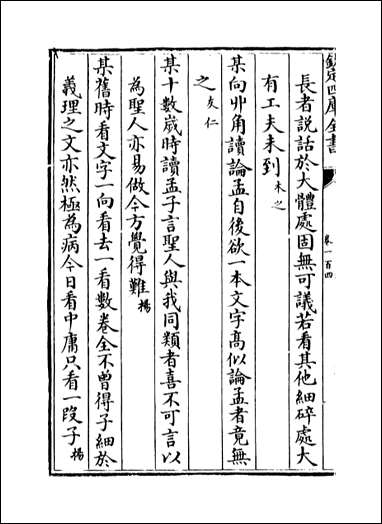 欽定四庫全書
卷一百四
長者說話於大體處固無可議若看其他細碎處大
有工夫未到木之
某向丱角讀論孟自後欲一本文字高似論孟者竟無
之友仁
某十數歲時讀孟子言聖人與我同類者喜不可言以
為聖人亦易做今方覺得難揚
某舊時看文字一向看去一看數卷全不曾得子細於
義理之文亦然極為病今日看中庸只看一段子揚